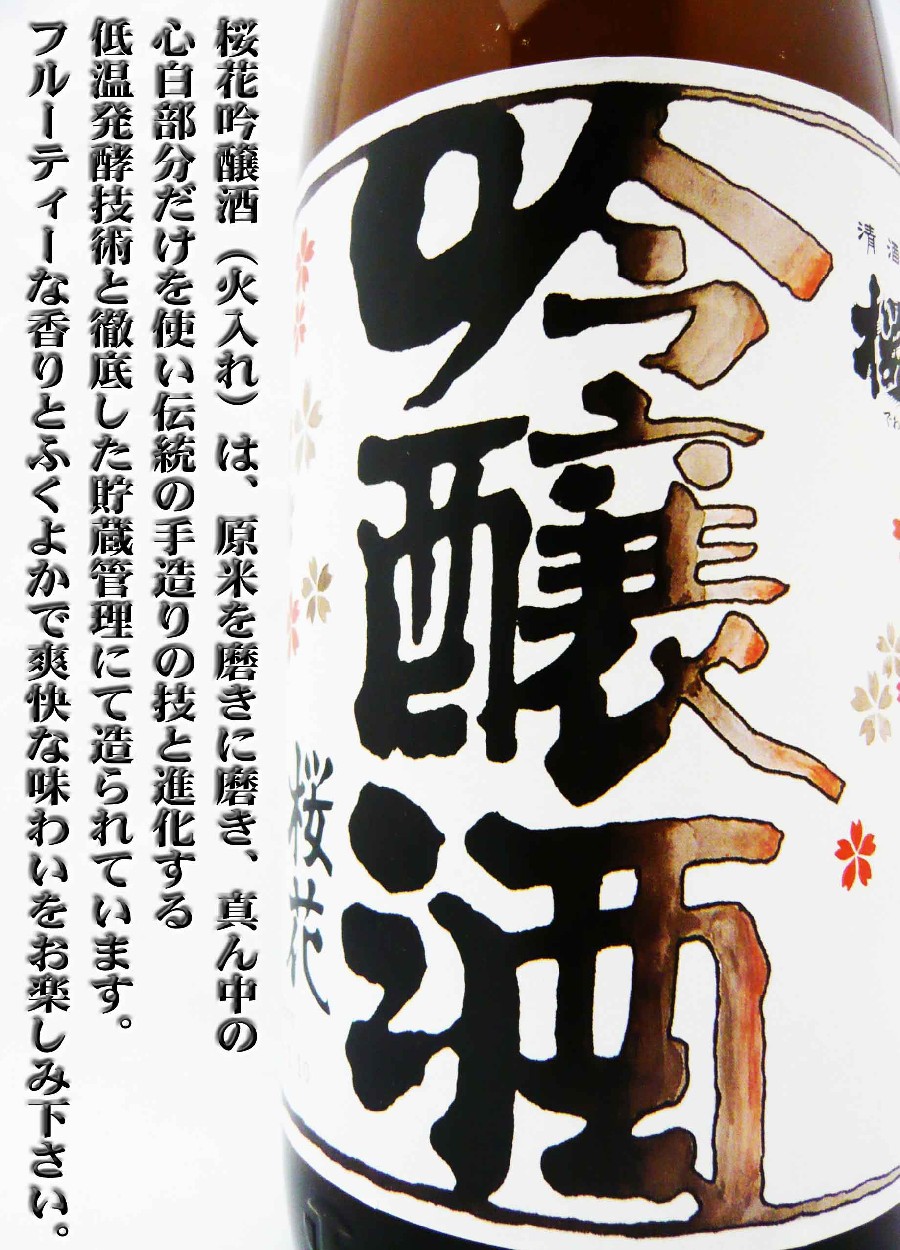 桜花吟醸酒（火入れ）は、原米を磨きに磨き、真ん中の
心白部分だけを使い伝統の手造りの技と進化する
低温発酵技術と徹底した貯蔵管理にて造られています。
フルーティーな香りとふくよかで爽快な味わいをお楽しみ下さい。
吟醸酒
桜花
清酒
でわ